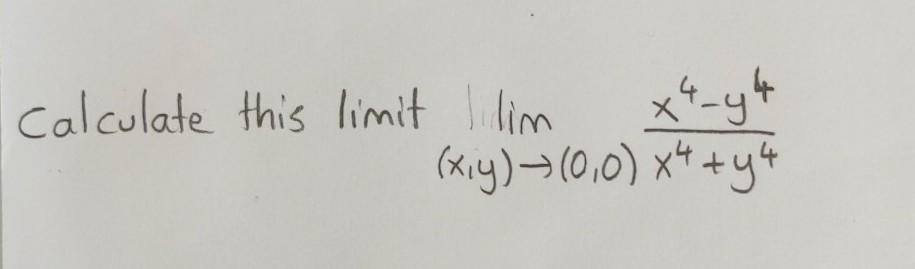 Calculate this limit lim x⁴-y⁴
(x,y)→(0,0) x⁴+y⁴